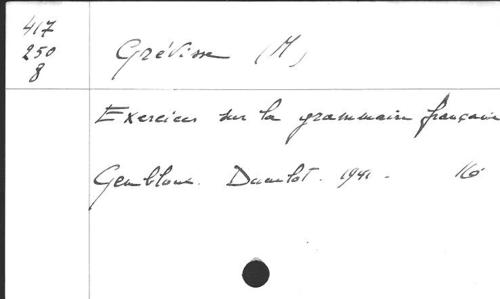 417
250
8
Grévisse (M)
Exercices sur la grammaire française
Gembloux. Duculot. 1941. 16°